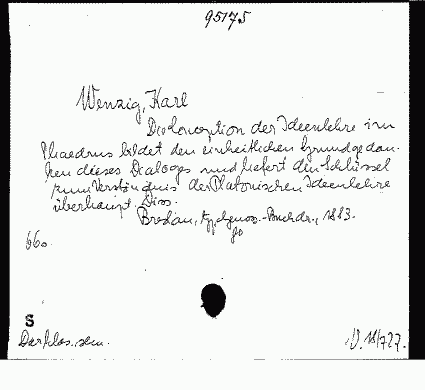 95175
Wenzig, Karl
Die Konzeption der Ideenlehre im
Phaedrus bildet den einheitlichen Grundgedan-
ken dieses Dialoges und liefert den Schlüssel
zum Verständnis der Platonischen Ideenlehre
überhaupt. Diss.
Breslau, Genoss.-Buchdr., 1883.
8°
66o
S
sem.